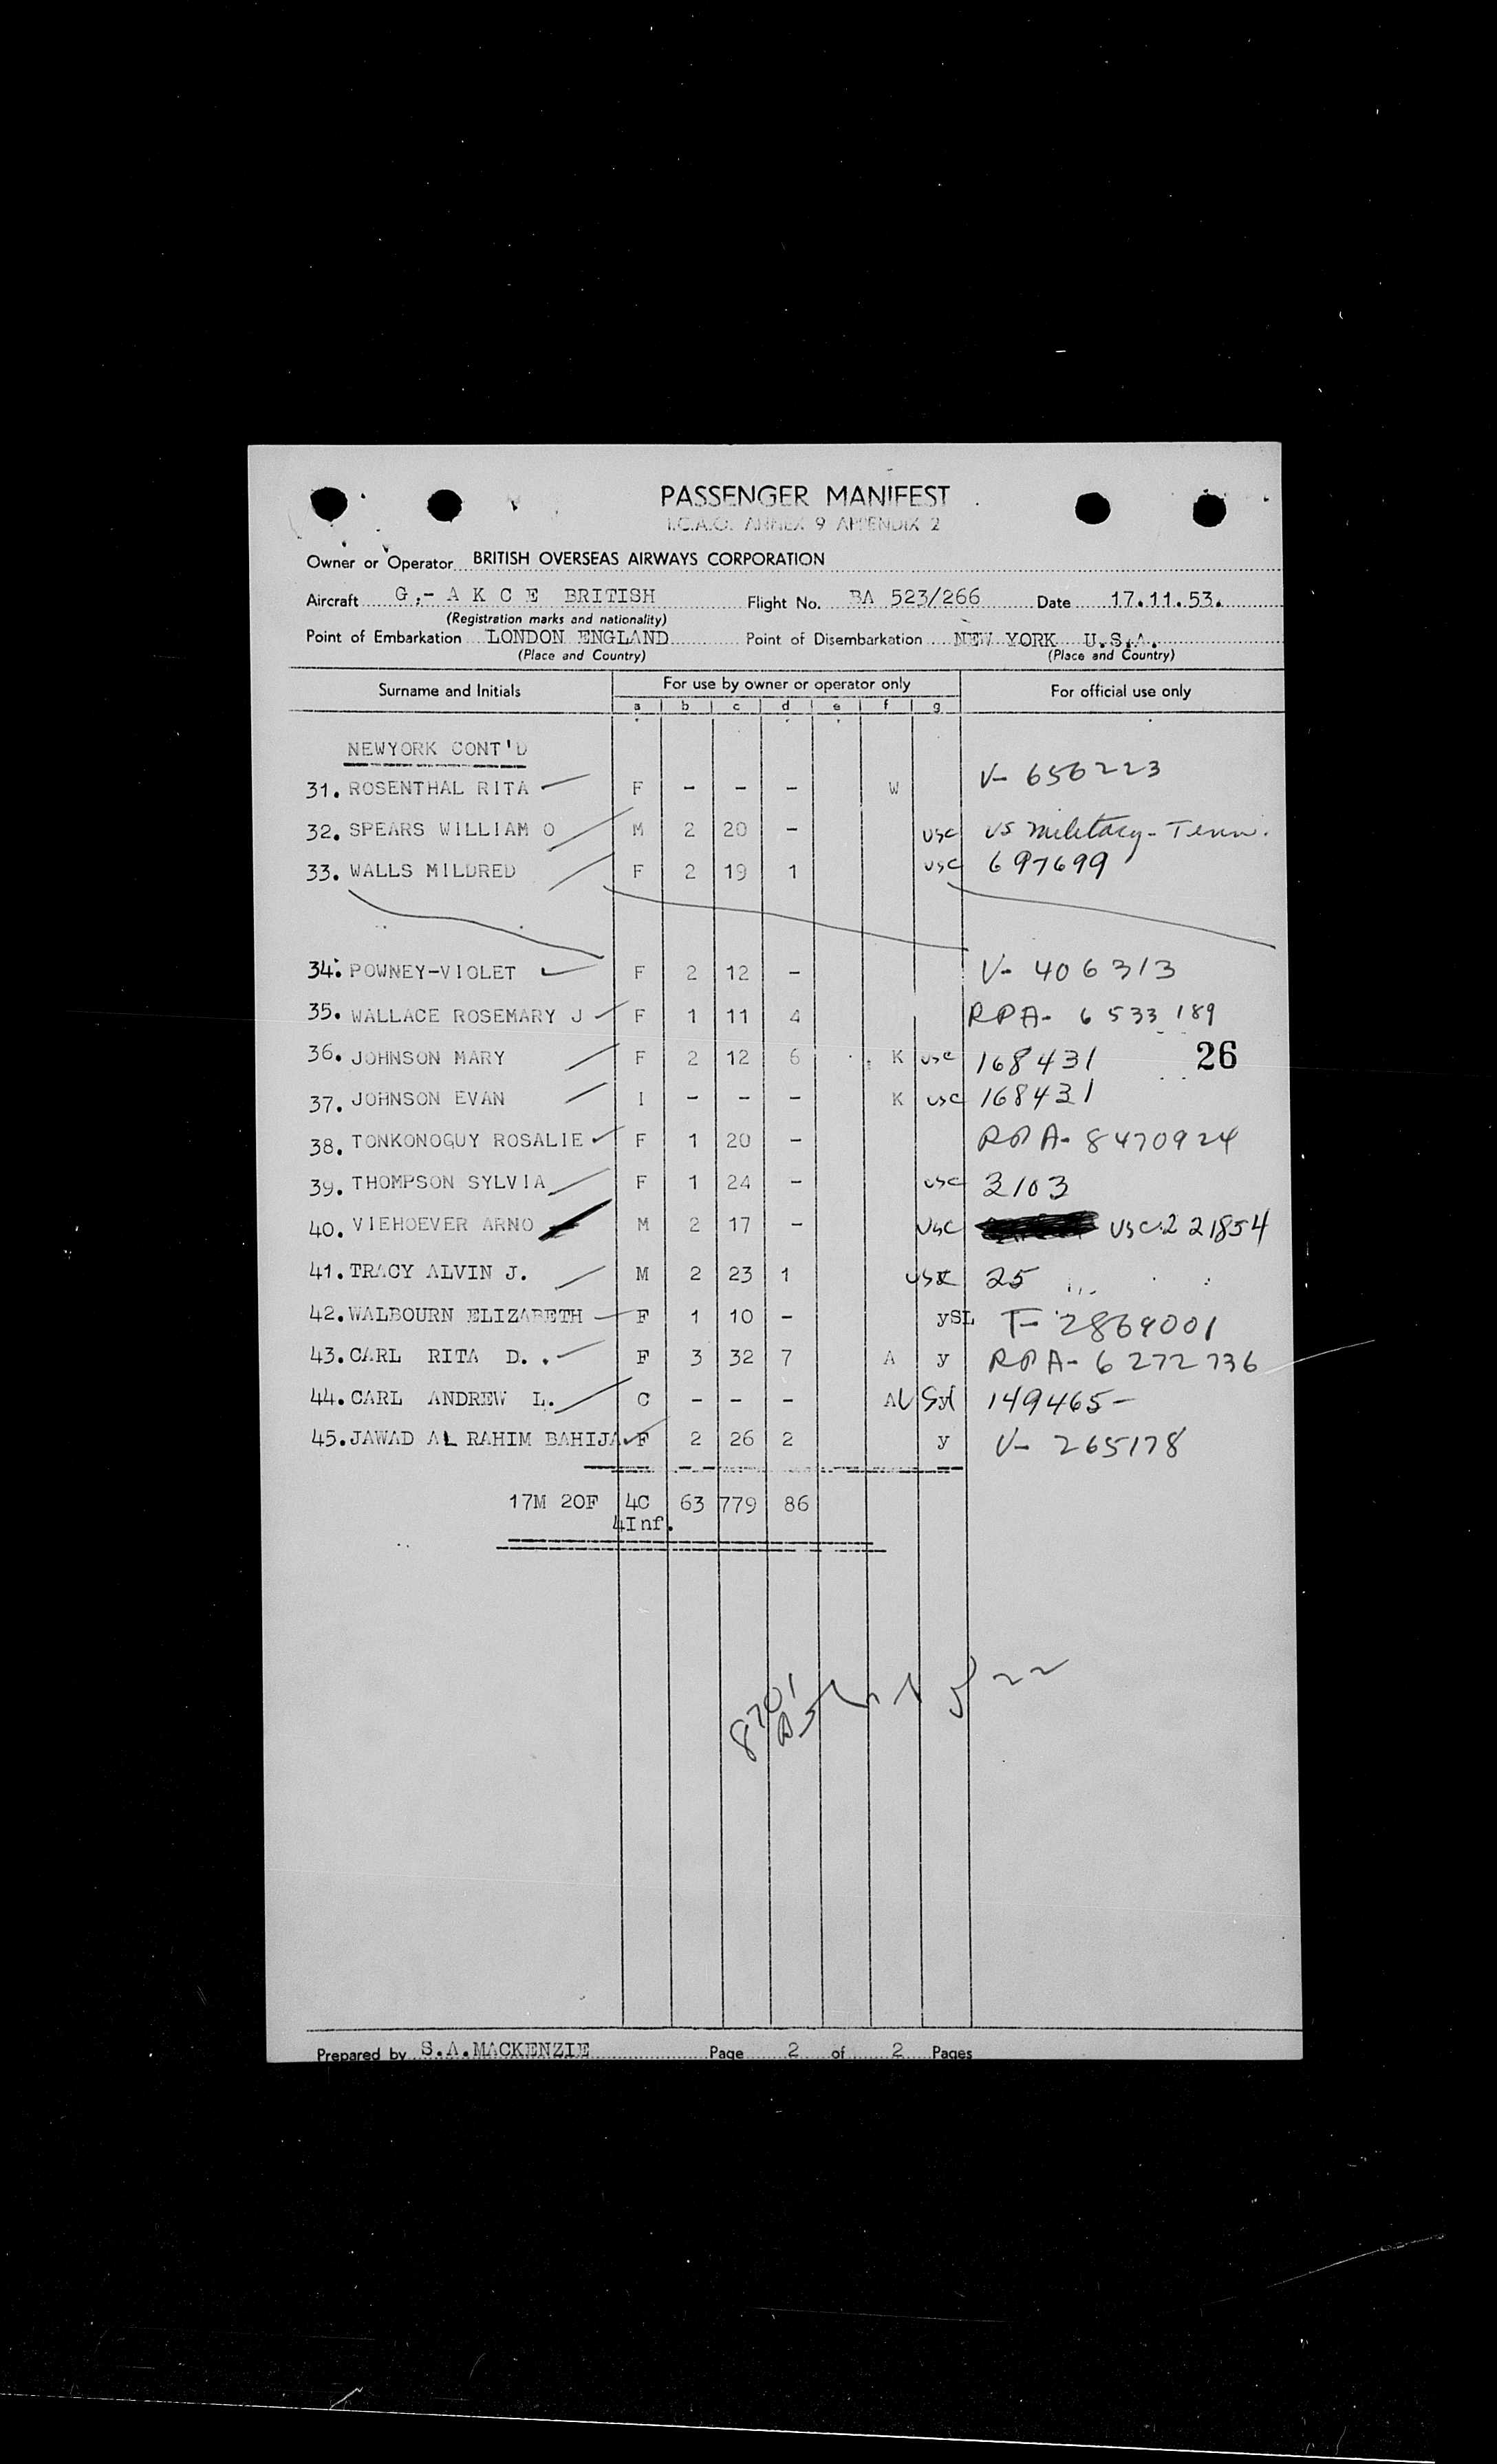 PASSENGER MANIFEST
I.C.A.O. ANNEX 9 APPENDIX 2
Owner or Operator BRITISH OVERSEAS AIRWAYS CORPORATION
Aircraft G.- A K C E BRITISH Flight No. BA 523/266 Date 17.11.53.
(Registration marks and nationality)
Point of Embarkation LONDON ENGLAND Point of Disembarkation NEW YORK U.S.A.
(Place and Country) (Place and Country)
Surname and Initials For use by owner or operator only For official use only
a b c d e f g
NEWYORK CONT'D
31. ROSENTHAL RITA F - - - W V- 656223
32. SPEARS WILLIAM O M 2 20 - usc US military - Tenn.
33. WALLS MILDRED F 2 19 1 usc 697699
34. POWNEY-VIOLET F 2 12 - V- 406313
35. WALLACE ROSEMARY J F 1 11 4 RPA- 6533189
36. JOHNSON MARY F 2 12 6 K usc 168431 26
37. JOHNSON EVAN I - - - K usc 168431
38. TONKONOGUY ROSALIE F 1 20 - RPA- 8470924
39. THOMPSON SYLVIA F 1 24 - usc 3103
40. VIEHOEVER ARNO M 2 17 - usc USC 221854
41. TRACY ALVIN J. M 2 23 1 25
42. WALBOURN ELIZABETH F 1 10 - ySL T- 2869001
43. CARL RITA D. . F 3 32 7 A y RPA- 6272736
44. CARL ANDREW L. C - - - A 149465-
45. JAWAD AL RAHIM BAHIJA F 2 26 2 y V- 265178
17M 20F 4C 63 779 86
4Inf.
8701
Prepared by S.A.MACKENZIE Page 2 of 2 Pages